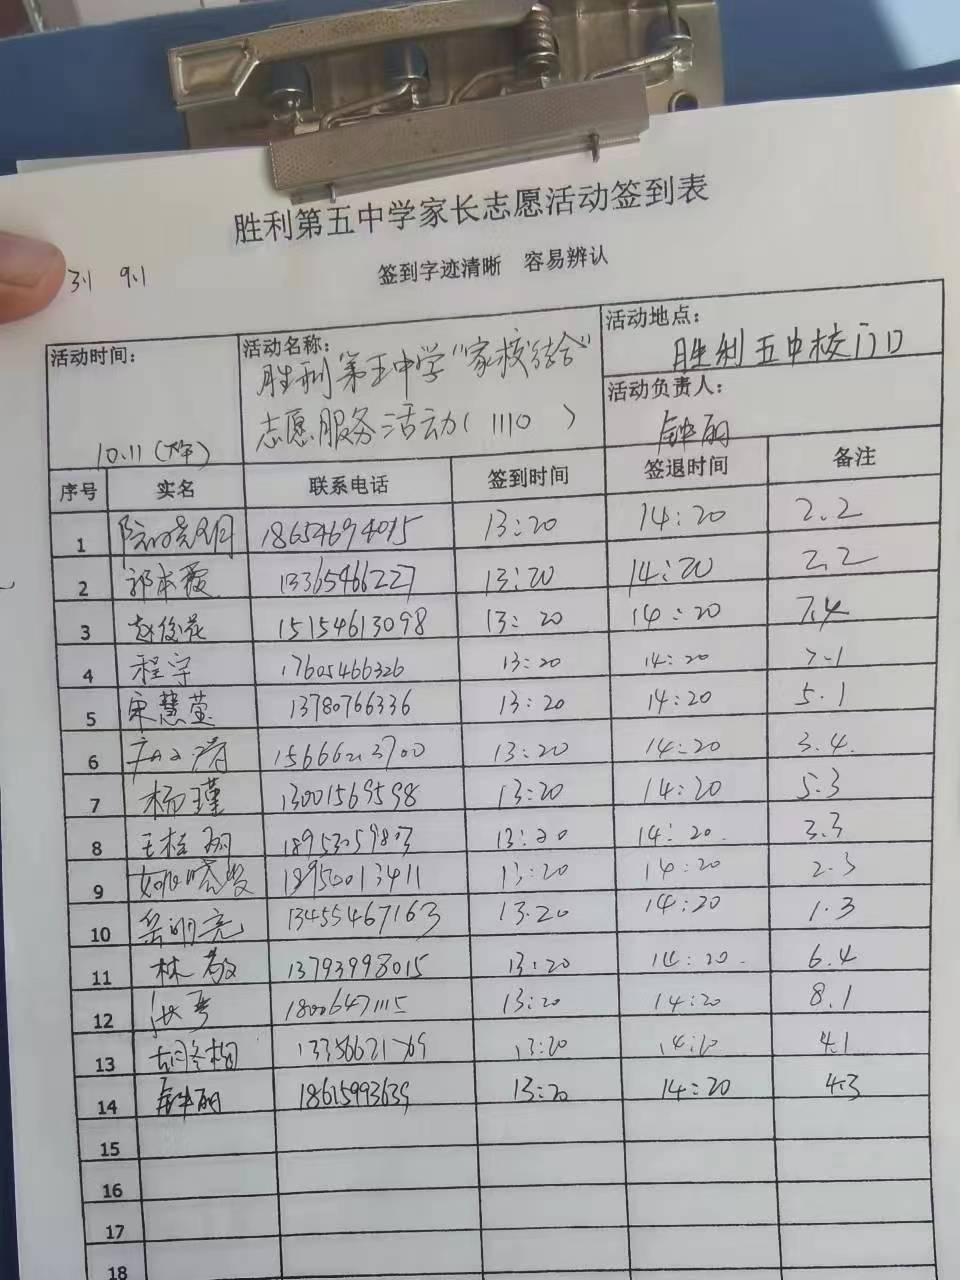 胜利第五中学家长志愿活动签到表
签到字迹清晰 容易辨认
3.1 9.1
活动时间：
10.11（下午）
活动名称：
胜利第五中学“家校结合”
志愿服务活动（1110 ）
活动地点：
胜利五中校门口
活动负责人：
钟丽
序号 实名 联系电话 签到时间 签退时间 备注
1 18654694015 13:20 14:20 2.2
2 郭本霞 13365466227 13:20 14:20 2.2
3 赵俊花 15154613098 13:20 14:20 7.4
4 程宇 17605466326 13:20 14:20 7.1
5 宋慧莹 13780766336 13:20 14:20 5.1
6 15666213700 13:20 14:20 3.4
7 杨瑾 13001569598 13:20 14:20 5.3
8 王桂丽 18953059803 13:20 14:20 3.3
9 18950013411 13:20 14:20 2.3
10 岳明亮 13455467163 13:20 14:20 1.3
11 林敬 13793998015 13:20 14:20 6.4
12 18006471115 13:20 14:20 8.1
13 胡冬梅 13:20 14:20 4.1
14 钟丽 18615993639 13:20 14:20 4.3
15
16
17
18